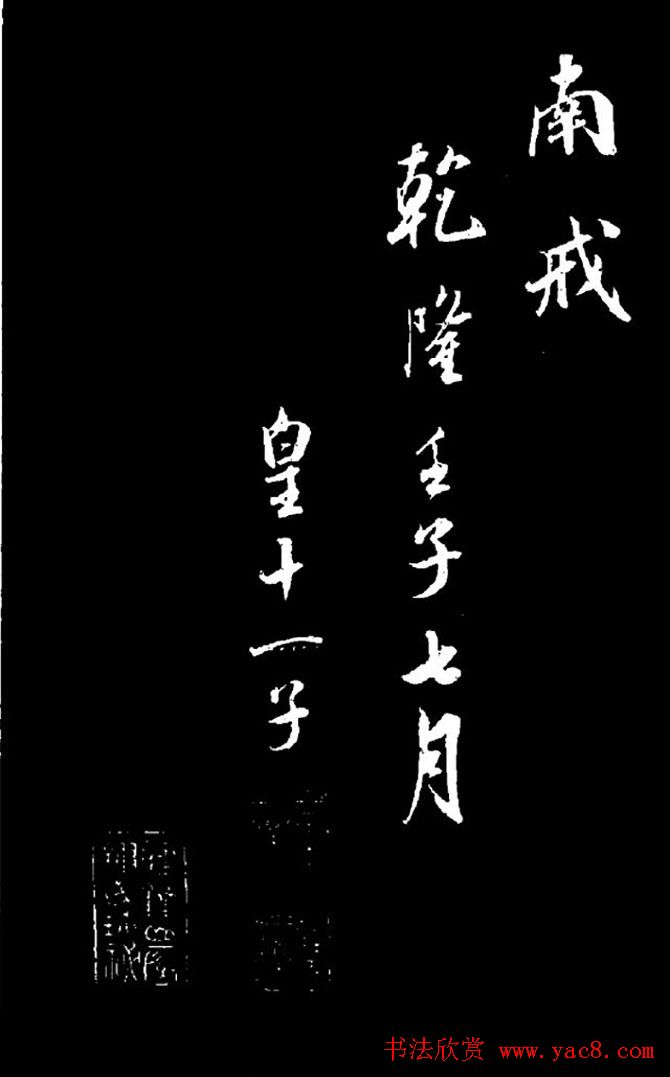 南戒
乾隆壬子七月
皇十一子
书法欣赏 www.yac8.com